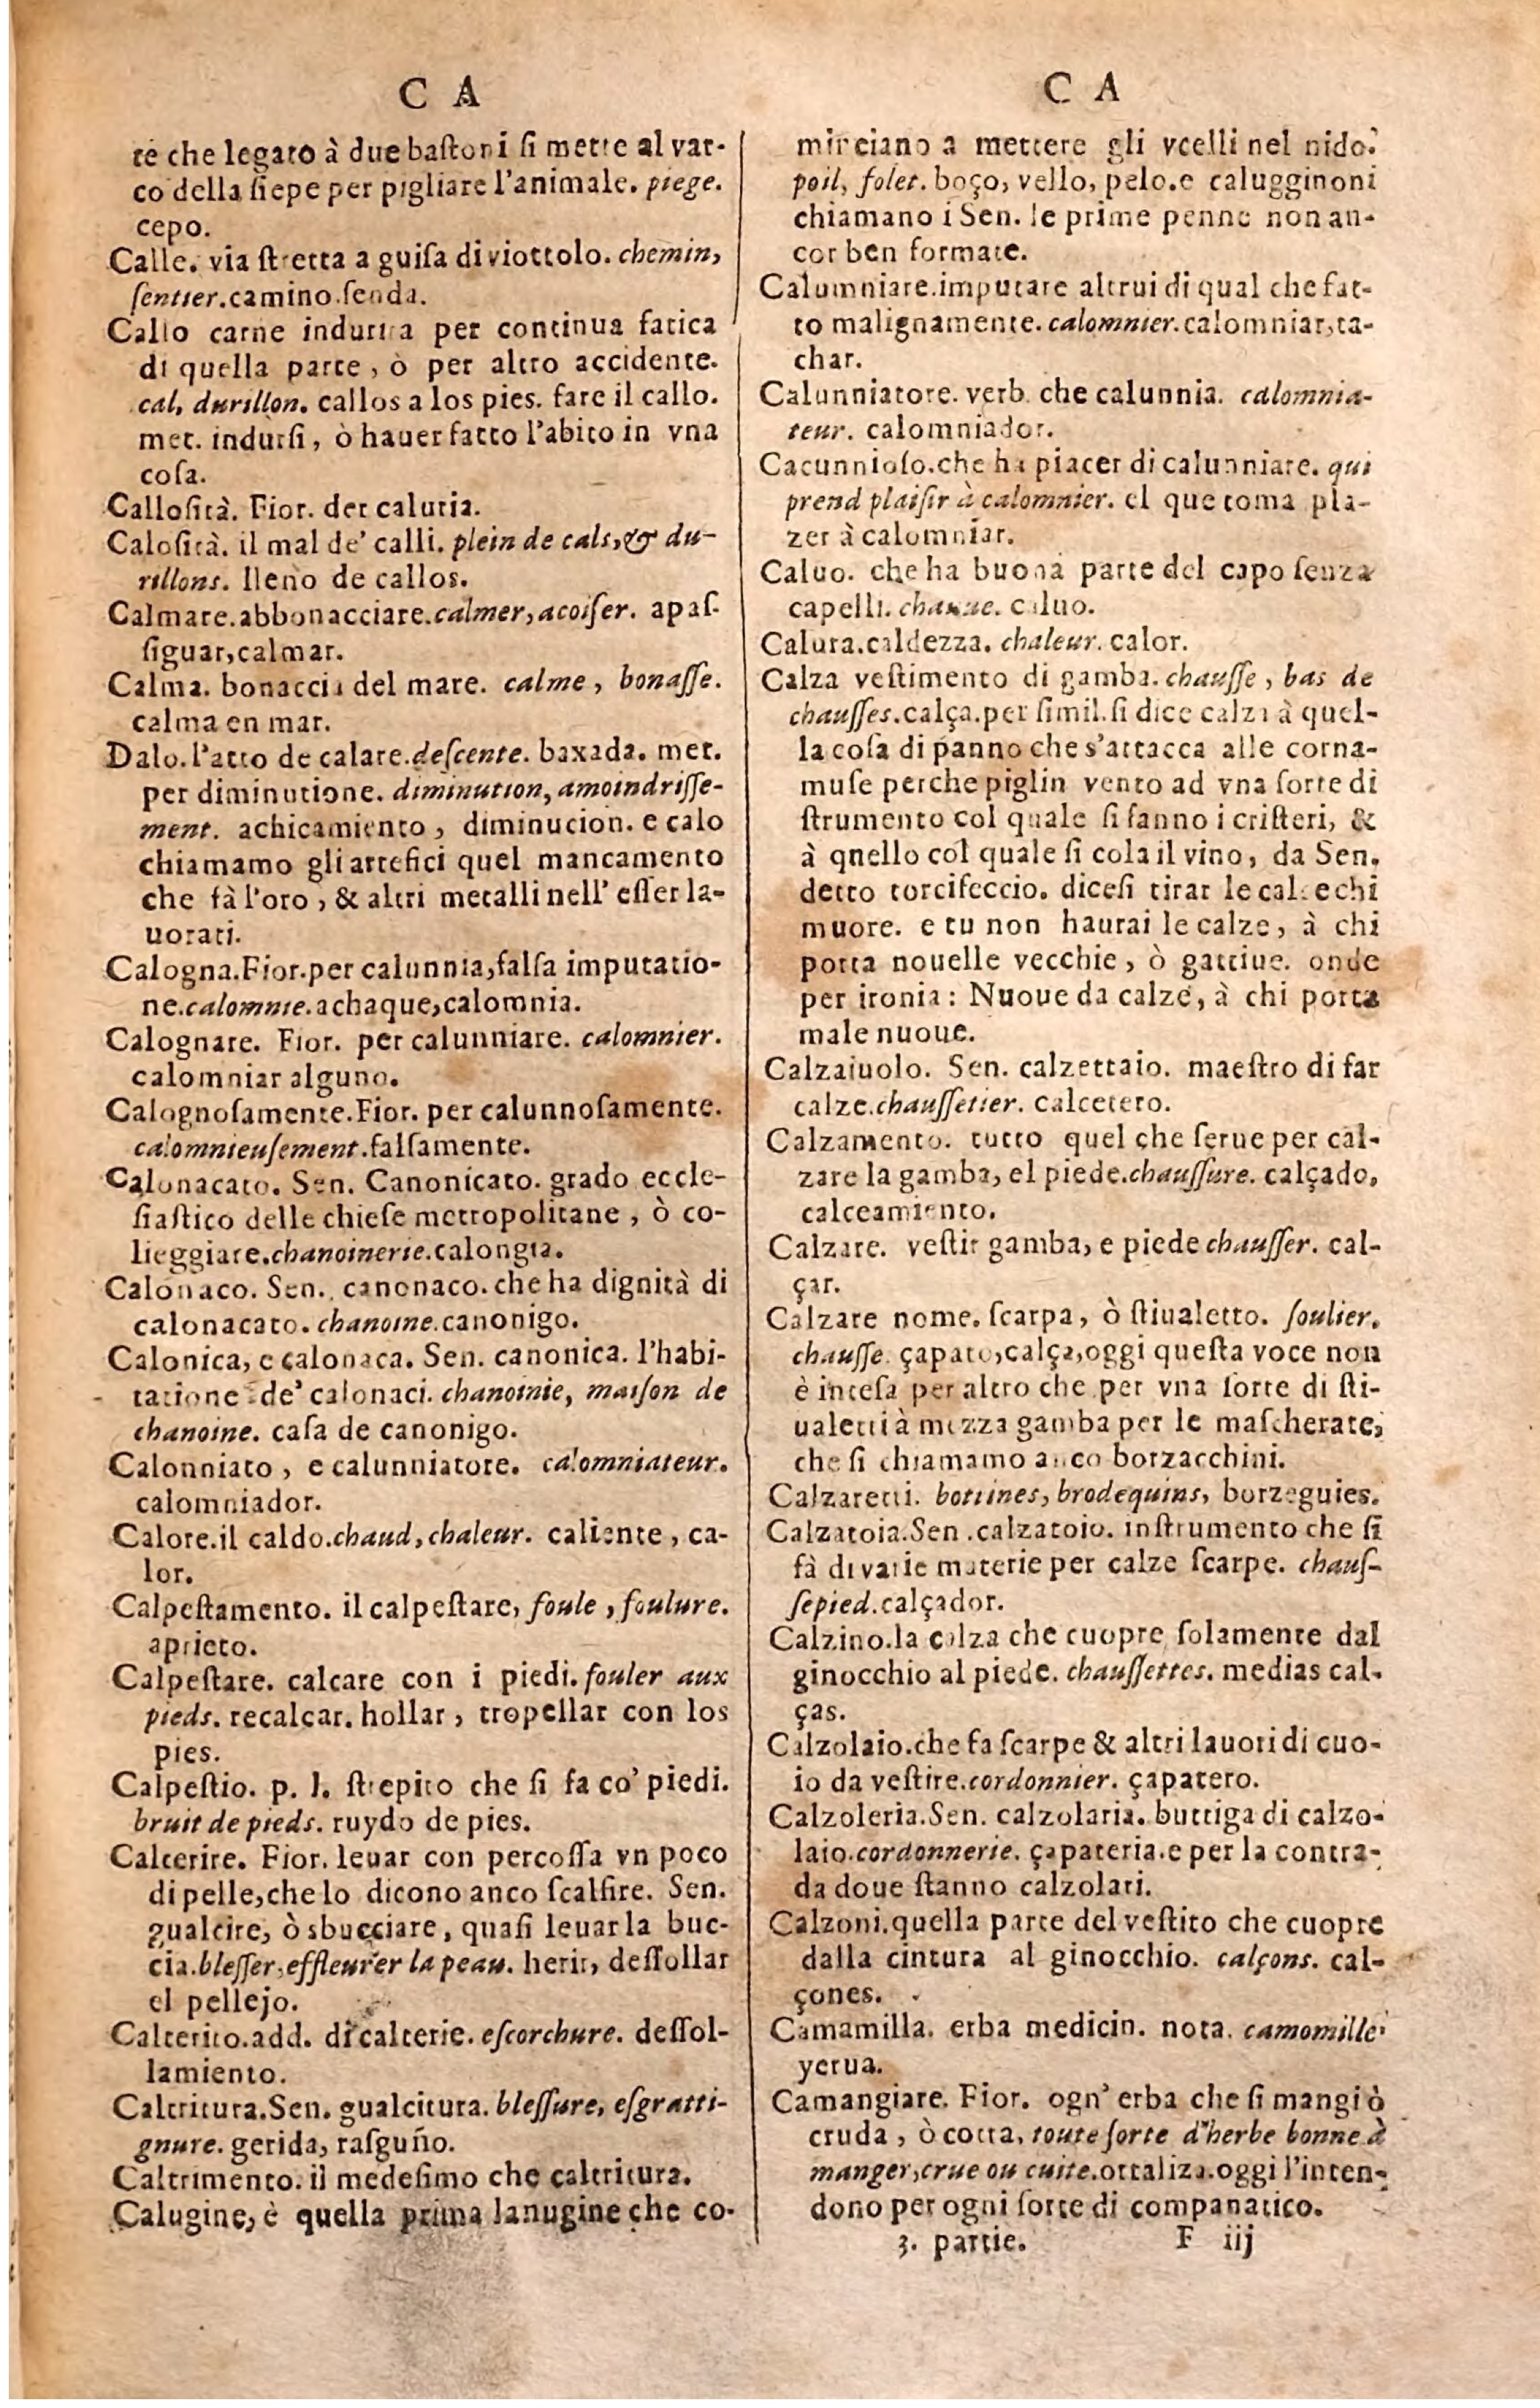 C A
te che legato à due baſtoni ſi mette al var-
co della ſiepe per pigliare l'animale. piege.
cepo.
Calle. via ſtretta a guiſa di viottolo. chemin,
ſentier.camino.ſenda.
Callo carne indurita per continua fatica
di quella parte, ò per altro accidente.
cal, durillon. callos a los pies. fare il callo.
met. indurſi, ò hauer fatto l'abito in vna
coſa.
Calloſità. Fior. det caluria.
Caloſità. il mal de' calli. plein de cals, & du-
rillons. lleno de callos.
Calmare.abbonacciare.calmer, acoiſer. apaſ-
ſiguar,calmar.
Calma. bonaccia del mare. calme, bonaſſe.
calma en mar.
Dalo. l'atto de calare.deſcente. baxada. met.
per diminutione. diminution, amoindriſſe-
ment. achicamiento, diminucion. e calo
chiamamo gli artefici quel mancamento
che fà l'oro, & altri metalli nell' eſſer la-
uorati.
Calogna.Fior.per calunnia,falſa imputatio-
ne.calomnie.achaque,calomnia.
Calognare. Fior. per calunniare. calomnier.
calomniar alguno.
Calognoſamente.Fior. per calunnoſamente.
calomnieuſement.falſamente.
Calonacato. Sen. Canonicato. grado eccle-
ſiaſtico delle chieſe metropolitane, ò co-
lieggiate.chanoinerie.calongia.
Calonaco. Sen. canonaco. che ha dignità di
calonacato. chanoine.canonigo.
Calonica, e calonaca. Sen. canonica. l'habi-
tatione de' calonaci. chanoinie, maiſon de
chanoine. caſa de canonigo.
Calonniato, e calunniatore. calomniateur.
calomniador.
Calore.il caldo.chaud, chaleur. caliente, ca-
lor.
Calpeſtamento. il calpeſtare, foule, foulure.
aprieto.
Calpeſtare. calcare con i piedi. fouler aux
pieds. recalcar. hollar, tropellar con los
pies.
Calpeſtio. p. l. ſtrepito che ſi fa co' piedi.
bruit de pieds. ruydo de pies.
Calterire. Fior. leuar con percoſſa vn poco
di pelle,che lo dicono anco ſcalfire. Sen.
gualcire, ò sbucciare, quaſi leuar la buc-
cia.bleſſer,effleurer la peau. herir, deſſollar
el pellejo.
Calterito.add. di calterie. eſcorchure. deſſol-
lamiento.
Caltritura.Sen. gualcitura. bleſſure, eſgratti-
gnure. gerida, raſguño.
Caltrimento. il medeſimo che caltritura.
Calugine, è quella prima lanugine che co-
C A
minciano a mettere gli vcelli nel nido.
poil, folet. boço, vello, pelo.e calugginoni
chiamano i Sen. le prime penne non an-
cor ben formate.
Calumniare.imputare altrui di qual che fat-
to malignamente. calomnier.calomniar,ta-
char.
Calunniatore. verb. che calunnia. calomnia-
teur. calomniador.
Cacunnioſo.che ha piacer di calunniare. qui
prend plaiſir à calomnier. el que toma pla-
zer à calomniar.
Caluo. che ha buona parte del capo ſenza
capelli. chauue. caluo.
Calura.caldezza. chaleur. calor.
Calza veſtimento di gamba. chauſſe, bas de
chauſſes.calça.per ſimil. ſi dice calza à quel-
la coſa di panno che s'attacca alle corna-
muſe perche piglin vento ad vna ſorte di
ſtrumento col quale ſi fanno i criſteri, &
à qnello col quale ſi cola il vino, da Sen.
detto torcifeccio. diceſi tirar le calze chi
muore. e tu non haurai le calze, à chi
porta nouelle vecchie, ò gattiue. onde
per ironia: Nuoue da calze, à chi porta
male nuoue.
Calzaiuolo. Sen. calzettaio. maeſtro di far
calze.chauſſetier. calcetero.
Calzamento. tutto quel che ſerue per cal-
zare la gamba, el piede.chauſſure. calçado,
calceamiento.
Calzare. veſtir gamba, e piede chauſſer. cal-
çar.
Calzare nome. ſcarpa, ò ſtiualetto. ſoulier.
chauſſe. çapato,calça,oggi queſta voce non
è inteſa per altro che per vna ſorte di ſti-
ualetti à mezza gamba per le maſcherate,
che ſi chiamamo anco borzacchini.
Calzaretti. bottines, brodequins, borzeguies.
Calzatoia.Sen.calzatoio. inſtrumento che ſi
fà di varie materie per calze ſcarpe. chauſ-
ſepied.calçador.
Calzino.la calza che cuopre ſolamente dal
ginocchio al piede. chauſſettes. medias cal-
ças.
Calzolaio.che fa ſcarpe & altri lauori di cuo-
io da veſtire.cordonnier. çapatero.
Calzoleria.Sen. calzolaria. buttiga di calzo-
laio.cordonnerie. çapateria.e per la contra-
da doue ſtanno calzolari.
Calzoni.quella parte del veſtito che cuopre
dalla cintura al ginocchio. calçons. cal-
çones.
Camamilla. erba medicin. nota. camomille
yerua.
Camangiare. Fior. ogn' erba che ſi mangi ò
cruda, ò cotta, toute ſorte d'herbe bonne à
manger,crue ou cuite.ortaliza.oggi l'inten-
dono per ogni ſorte di companatico.
3. partie. F iij